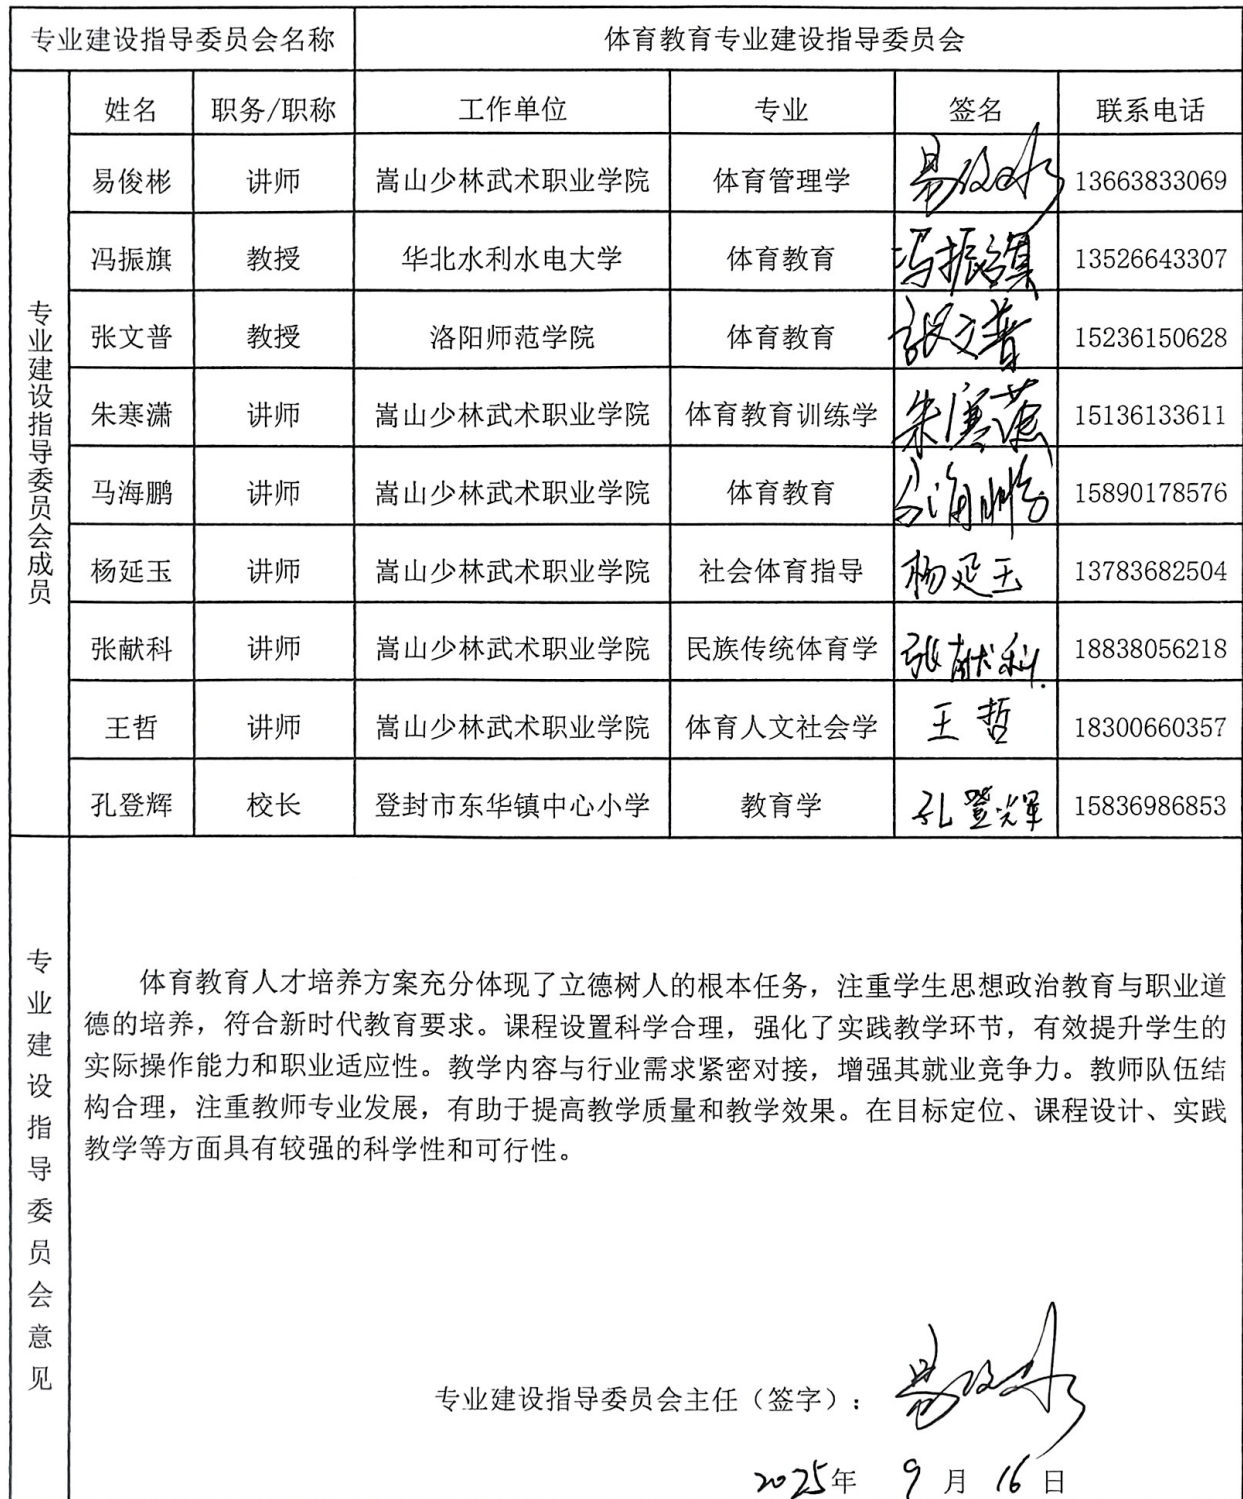 专业建设指导委员会名称 体育教育专业建设指导委员会
专业建设指导委员会成员
姓名 职务/职称 工作单位 专业 签名 联系电话
易俊彬 讲师 嵩山少林武术职业学院 体育管理学 易俊彬 13663833069
冯振旗 教授 华北水利水电大学 体育教育 冯振旗 13526643307
张文普 教授 洛阳师范学院 体育教育 张文普 15236150628
朱寒潇 讲师 嵩山少林武术职业学院 体育教育训练学 朱寒潇 15136133611
马海鹏 讲师 嵩山少林武术职业学院 体育教育 马海鹏 15890178576
杨延玉 讲师 嵩山少林武术职业学院 社会体育指导 杨延玉 13783682504
张献科 讲师 嵩山少林武术职业学院 民族传统体育学 张献科 18838056218
王哲 讲师 嵩山少林武术职业学院 体育人文社会学 王哲 18300660357
孔登辉 校长 登封市东华镇中心小学 教育学 孔登辉 15836986853
专业建设指导委员会意见
体育教育人才培养方案充分体现了立德树人的根本任务，注重学生思想政治教育与职业道
德的培养，符合新时代教育要求。课程设置科学合理，强化了实践教学环节，有效提升学生的
实际操作能力和职业适应性。教学内容与行业需求紧密对接，增强其就业竞争力。教师队伍结
构合理，注重教师专业发展，有助于提高教学质量和教学效果。在目标定位、课程设计、实践
教学等方面具有较强的科学性和可行性。
专业建设指导委员会主任（签字）：易俊彬
2025年 9月 16日